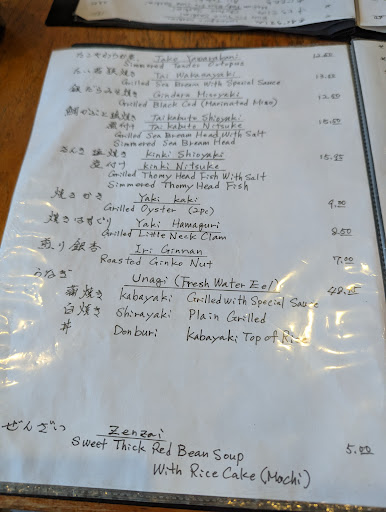 Tako Yawarakani
Simmered Tender Octopus
Tai Wakasayaki 13.50
Grilled Sea Bream With Special Sauce
銀だら みそ焼き Gindara Misoyaki 13.50
Grilled Black Cod (Marinated Miso)
鯛かぶと塩焼き Taikabuto Shioyaki 15.50
煮付け Taikabuto Nitsuke
Grilled Sea Bream Head With Salt
Simmered Sea Bream Head
きんき 塩焼き Kinki Shioyaki
煮付け Kinki Nitsuke
Grilled Thorny Head Fish With Salt
Simmered Thorny Head Fish
焼きかき Yaki kaki 9.00
Grilled Oyster (2pc)
焼きはまぐり Yaki Hamaguri 8.50
Grilled Little Neck Clam
煎り銀杏 Iri Ginnan 7.00
Roasted Ginko Nut
うなぎ Unagi (Fresh Water Eel)
蒲焼き Kabayaki Grilled with Special Sauce
白焼き Shirayaki Plain Grilled
丼 Donburi Kabayaki Top of Rice
ぜんざい Zenzai 5.00
Sweet Thick Red Bean Soup
With Rice Cake (Mochi)